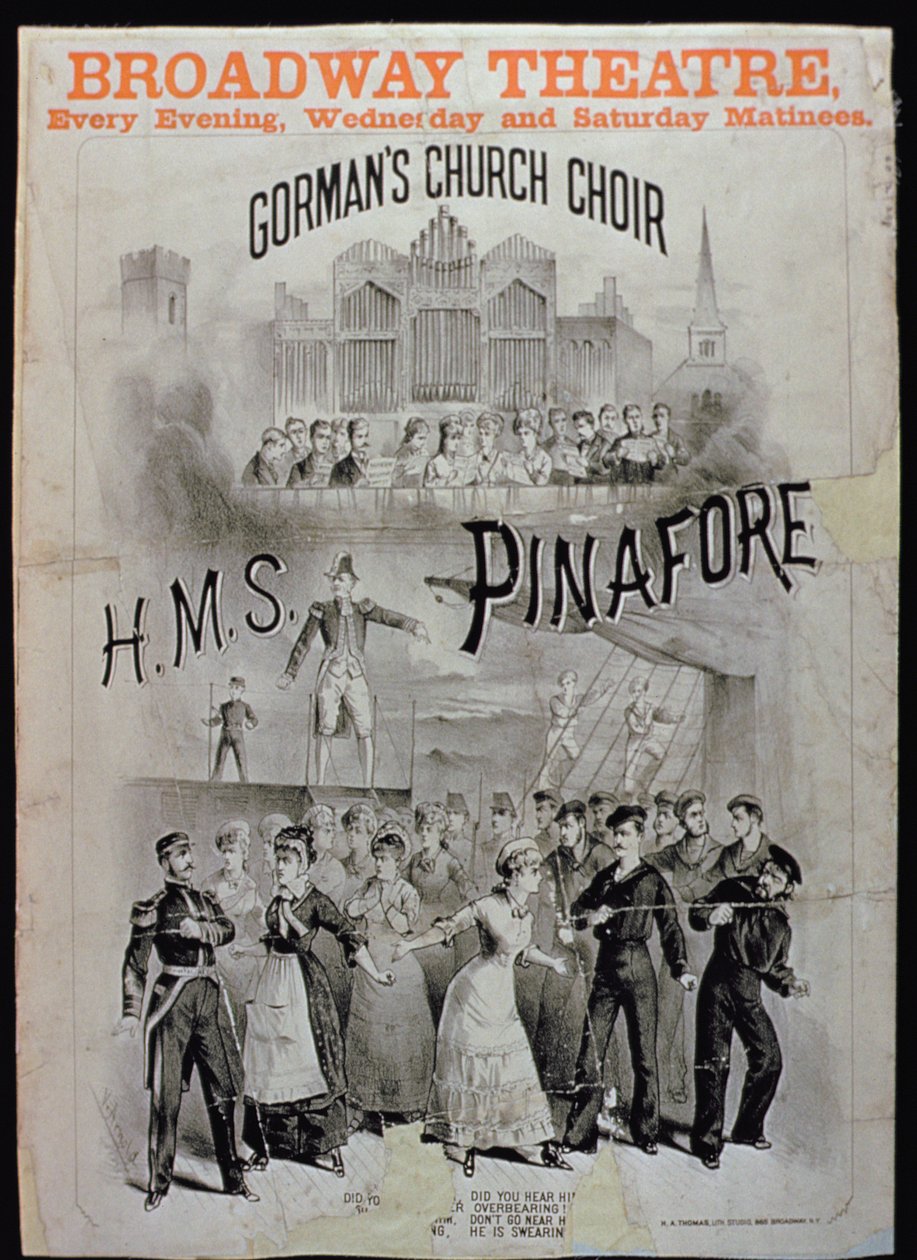 BROADWAY THEATRE,
Every Evening, Wednesday and Saturday Matinees.
GORMAN'S CHURCH CHOIR
H.M.S. PINAFORE
DID YO , DID YOU HEAR HI
OVERBEARING!
DON'T GO NEAR H
HE IS SWEARIN
H. A. THOMAS, LITH STUDIO, 865 BROADWAY, N.Y.